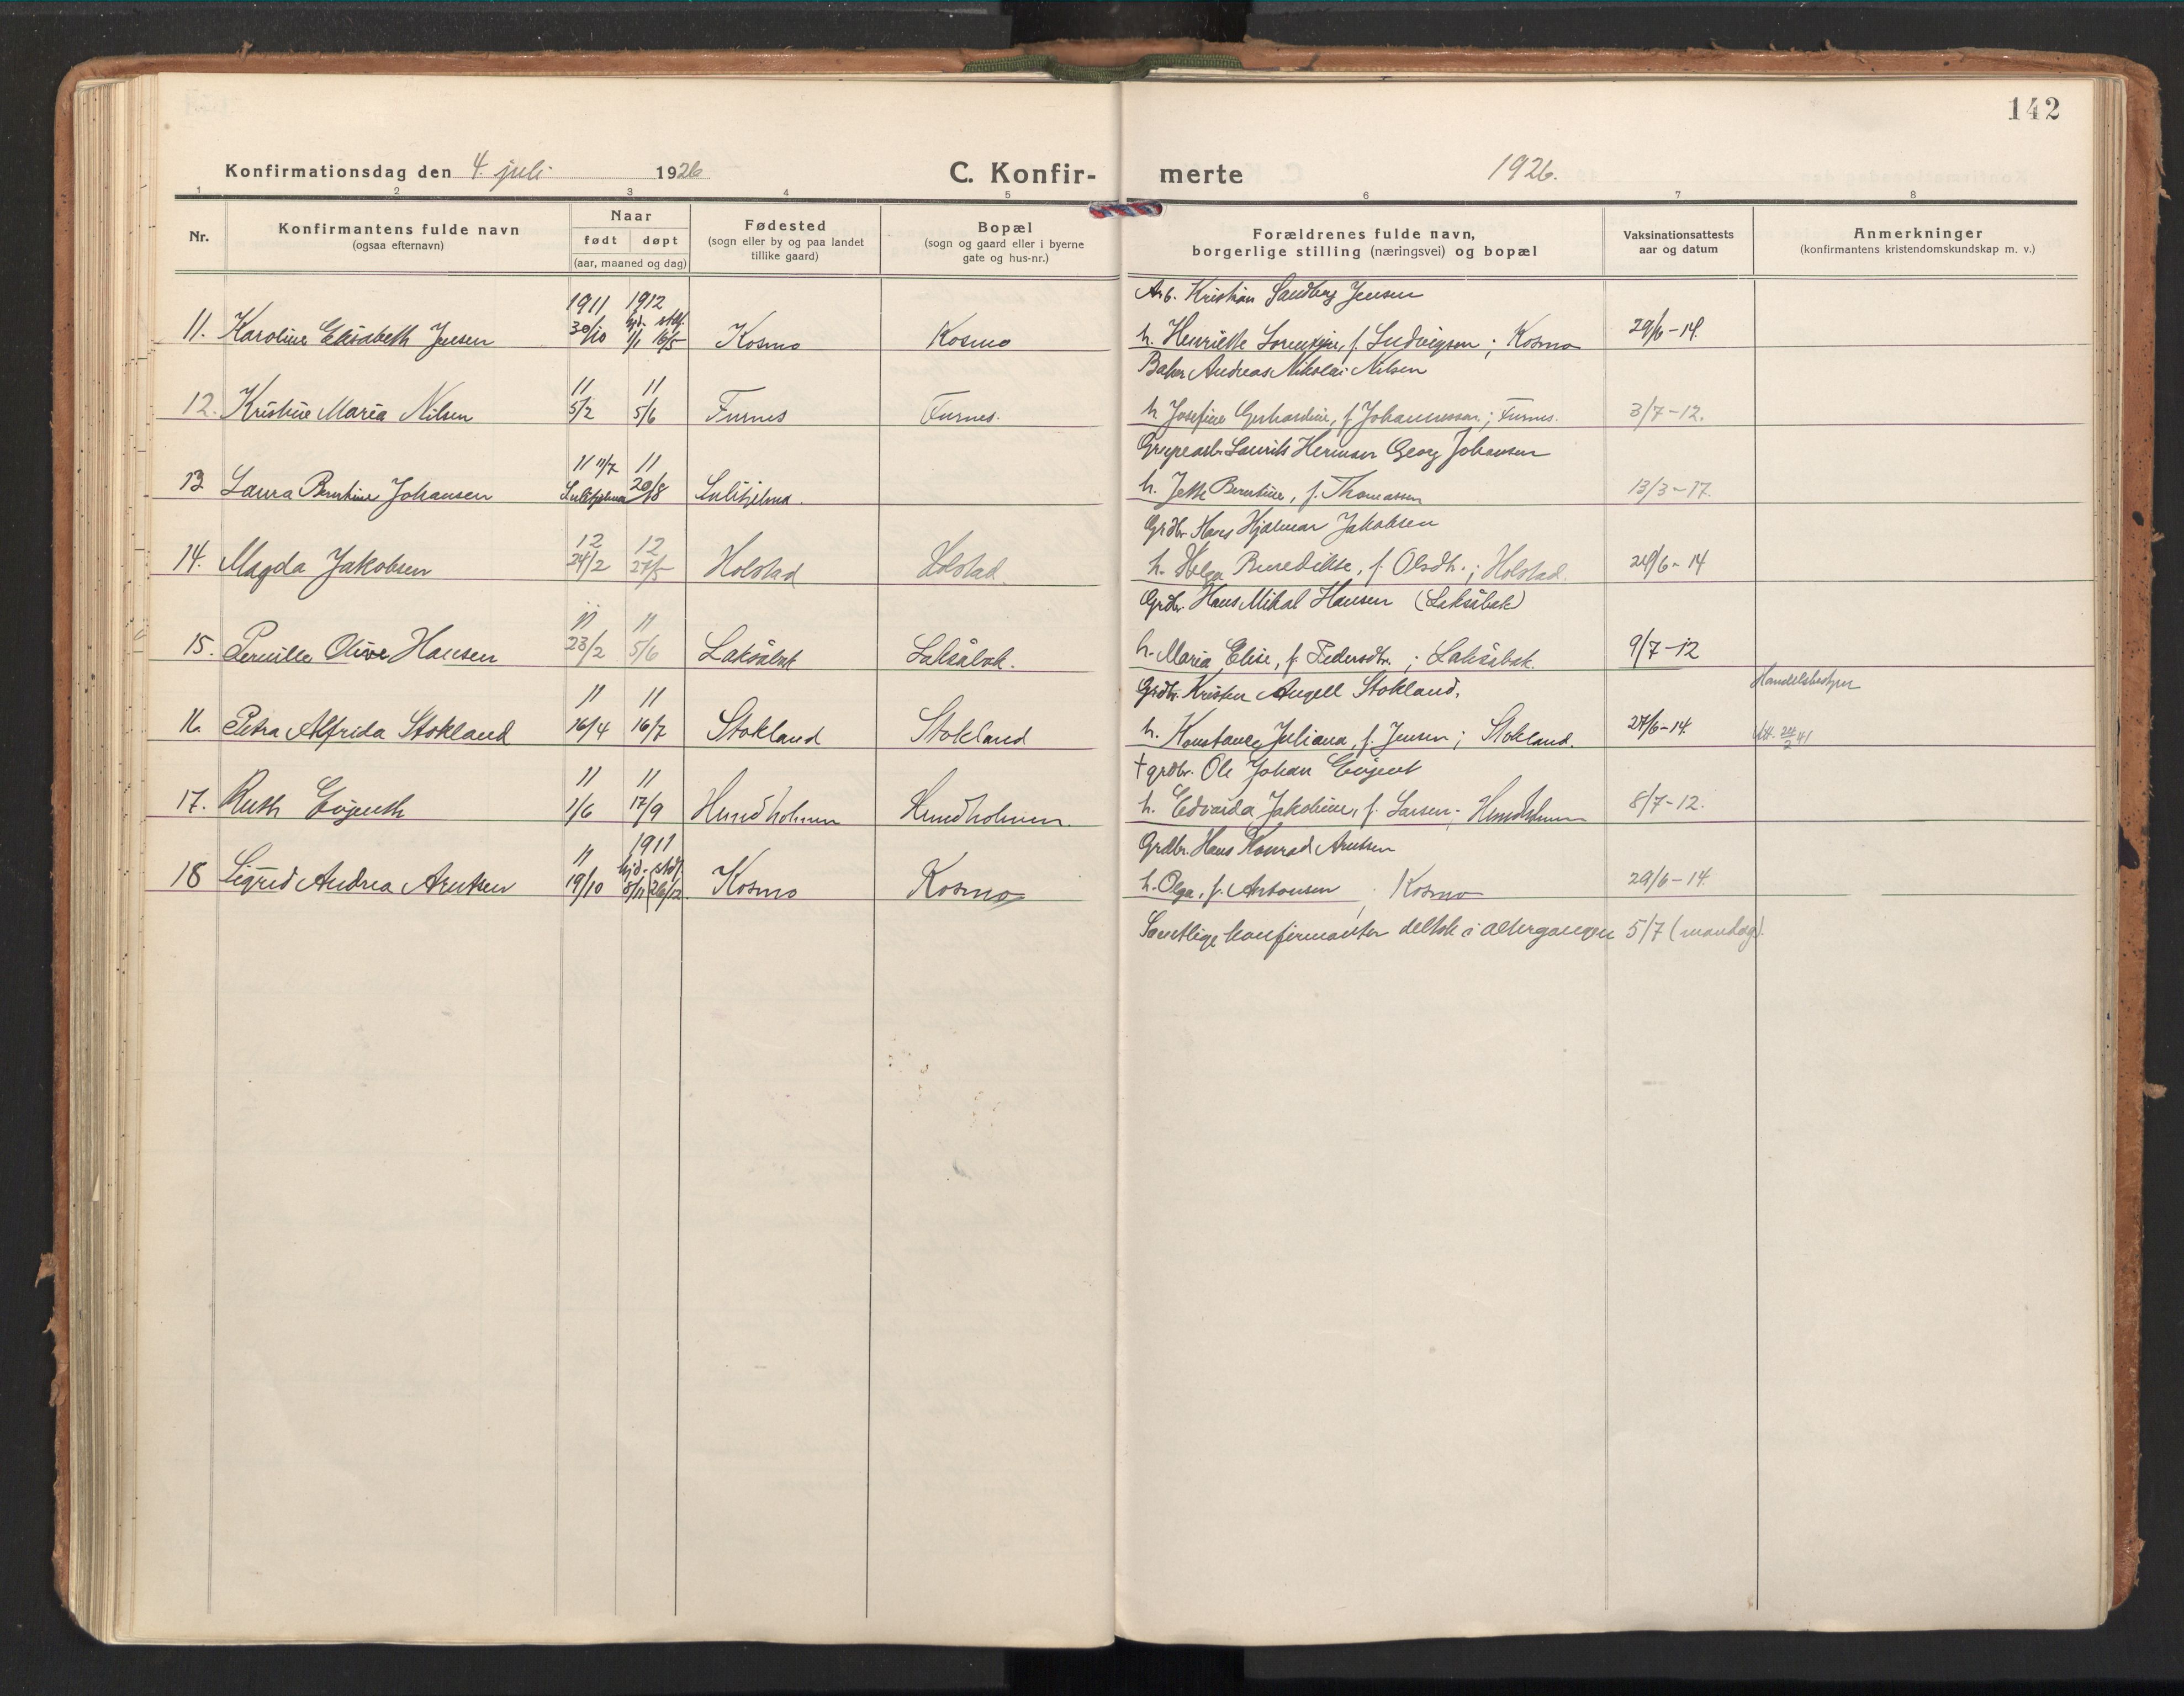 142
Konfirmationsdag den 4. juli 1926 C. Konfir- merte 1926.
1 2 3 4 5 6 7 8
Nr. Konfirmantens fulde navn (ogsaa efternavn) Naar født døpt (aar, maaned og dag) Fødested (sogn eller by og paa landet tillike gaard) Bopæl (sogn og gaard eller i byerne gate og hus-nr.) Forældrenes fulde navn, borgerlige stilling (næringsvei) og bopæl Vaksinationsattests aar og datum Anmerkninger (konfirmantens kristendomskundskap m. v.)
1911 1912 Arb. Kristian Sandberg Jensen
11. Karoline Elisabeth Jensen 30/10 hjd. stdf. 1/1 16/5 Kosmo Kosmo h. Henrikke Lorentzine, f. Ludvigsen; Kosmo 29/6-14.
11 11 Baker Andreas Nikolai Nilsen
12. Kristine Maria Nilsen 5/2 5/6 Furnes Furnes. h. Josefine Gerhardine, f. Johannessen; Furnes. 3/7-12.
11 11/7 11 Grubearb. Laurits Herman Georg Johansen
13 Laura Berntine Johansen Sulitjelma 20/8 Sulitjelma. h. Jette Berntine, f. Thomassen 13/3-17.
12 12 Grdbr. Hans Hjalmar Jakobsen
14. Magda Jakobsen 24/2 27/5 Holstad Holstad. h. Helga Benedikte, f. Olsdtr.; Holstad. 29/6-14
11 11 Grdbr. Hans Mikal Hansen (Laksåbak)
15. Pernille Olive Hansen 23/2 5/6 Laksåbak Laksåbak. h. Maria Elise, f. Pedersdtr.; Laksåbak. 9/7-12
11 11 Grdbr. Kristen Angell Stokland. Handelsbestyrer
16. Petra Alfrida Stokland 16/4 16/7 Stokland Stokland h. Konstance Juliana, f. Jensen; Stokland. 27/6-14. Att. 24/2 41
11 11 † grdbr. Ole Johan Evjenth
17. Ruth Evjenth 1/6 17/9 Hundholmen Hundholmen. h. Edvarda Jakobine, f. Larsen; Hundholmen 8/7-12.
11 1911 Grdbr. Hans Konrad Arntsen
18 Sigrid Andrea Arntsen 19/10 hjd. stdf. 5/11 26/12. Kosmo Kosmo h. Olga, f. Antonsen; Kosmo 29/6-14.
Samtlige konfirmanter deltok i altergangen 5/7 (mandag).